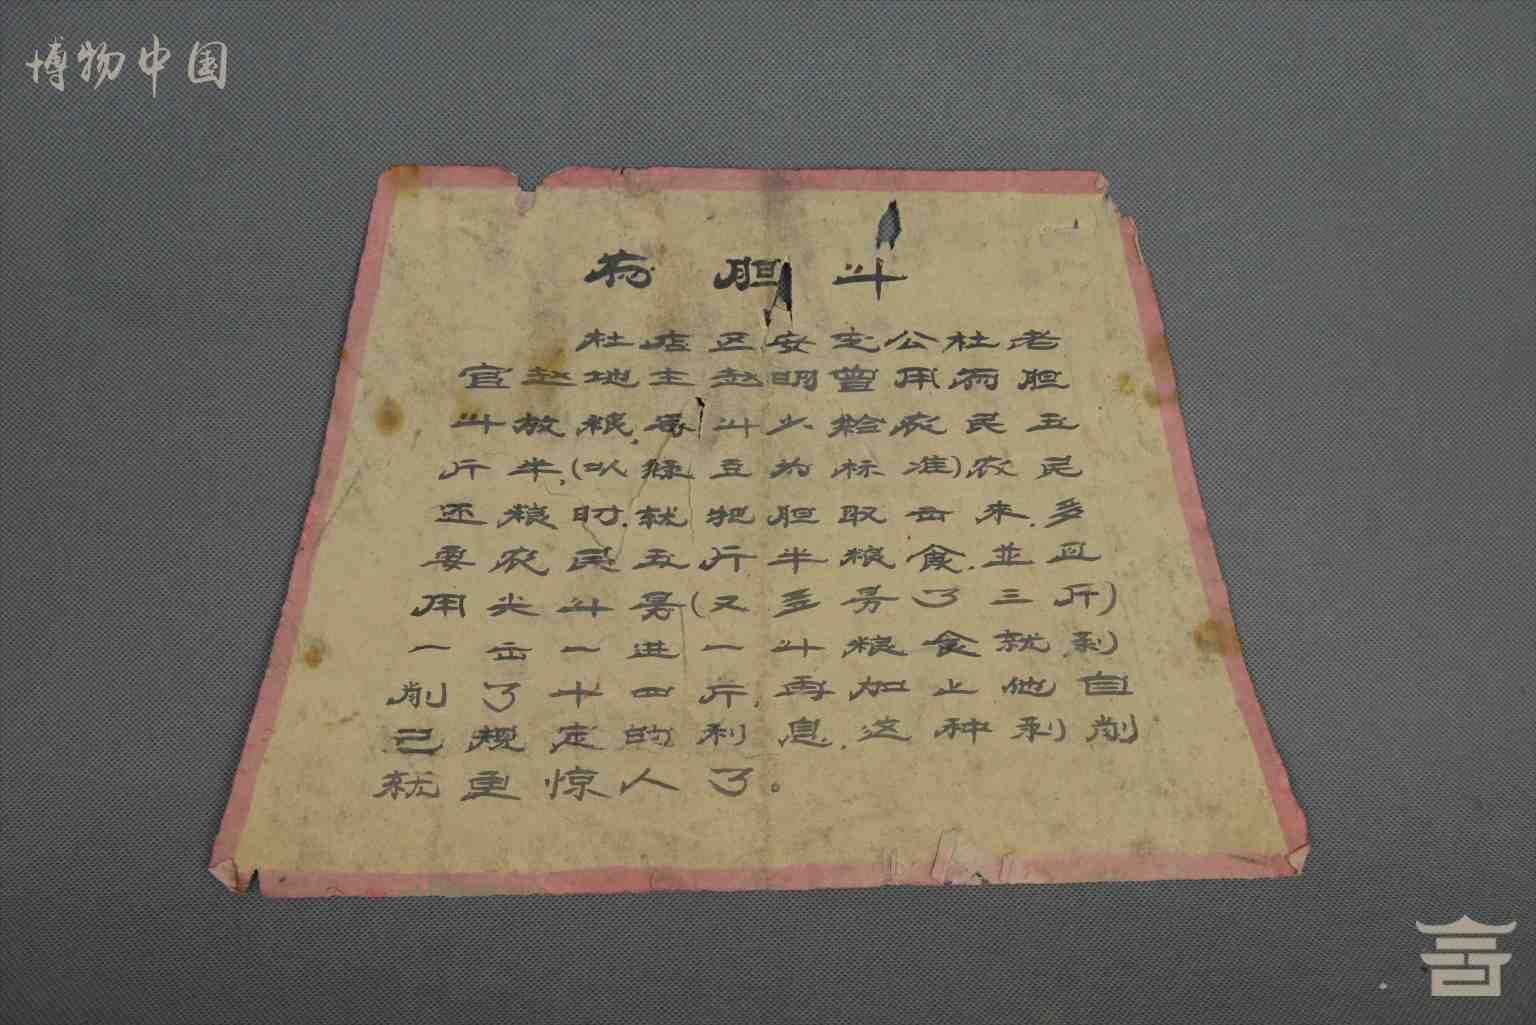 博物中国
有胆斗
杜店区安定公社老
官赵地主赵明曾用有胆
斗放粮，每斗少给农民五
斤半，(以绿豆为标准)农民
还粮时，就把胆取出来，多
要农民五斤半粮食，並且
用尖斗量(又多另了三斤)
一出一进一斗粮食就剥
削了十四斤，再加上他自
己规定的利息，这种剥削
就更惊人了。